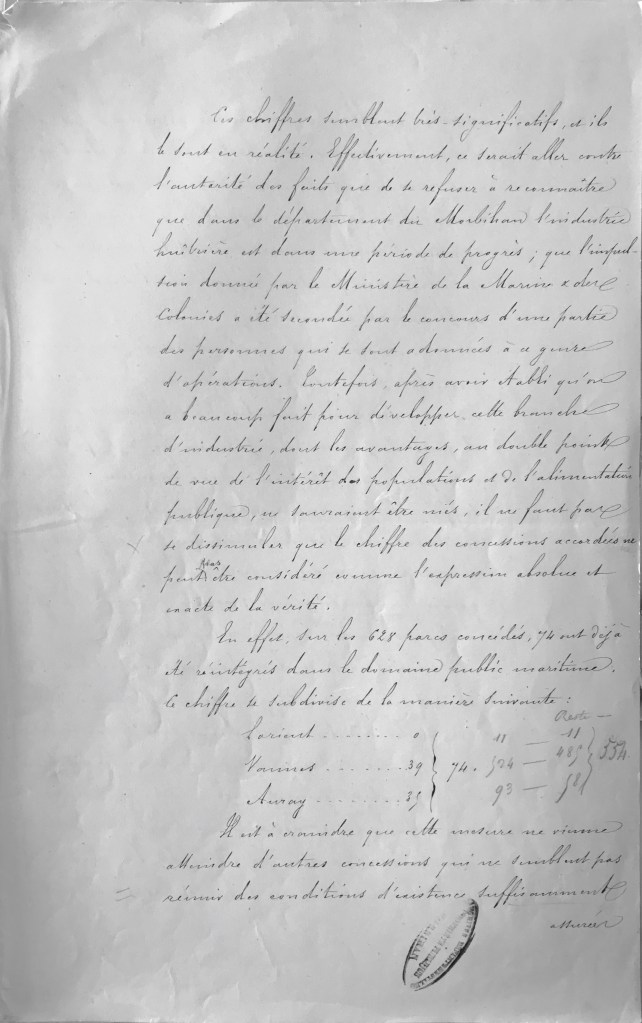 Ces chiffres semblent très-significatifs, et ils
le sont en réalité. Effectivement, ce serait aller contre
l'autorité des faits que de se refuser à reconnaître
que dans le département du Morbihan l'industrie
huîtrière est dans une période de progrès ; que l'impul-
sion donnée par le Ministère de la Marine & des
Colonies a été secondée par le concours d'une partie
des personnes qui se sont adonnées à ce genre
d'opérations. Toutefois, après avoir établi qu'on
a beaucoup fait pour développer cette branche
d'industrie, dont les avantages, au double point
de vue de l'intérêt des populations et de l'alimentation
publique, ne sauraient être niés, il ne faut pas
se dissimuler que le chiffre des concessions accordées ne
peut pas être considéré comme l'expression absolue et
exacte de la vérité.
En effet, sur les 628 parcs concédés, 74 ont déjà
été réintégrés dans le domaine public maritime.
Ce chiffre se subdivise de la manière suivante :
Reste —
Lorient ........ 0 11 — 11
Vannes ....... 39 74. 524 — 485 554
Auray ........ 35 93 — 58
Il est à craindre que cette mesure ne vienne
atteindre d'autres concessions qui ne semblent pas
réunir des conditions d'existence suffisamment
assurées